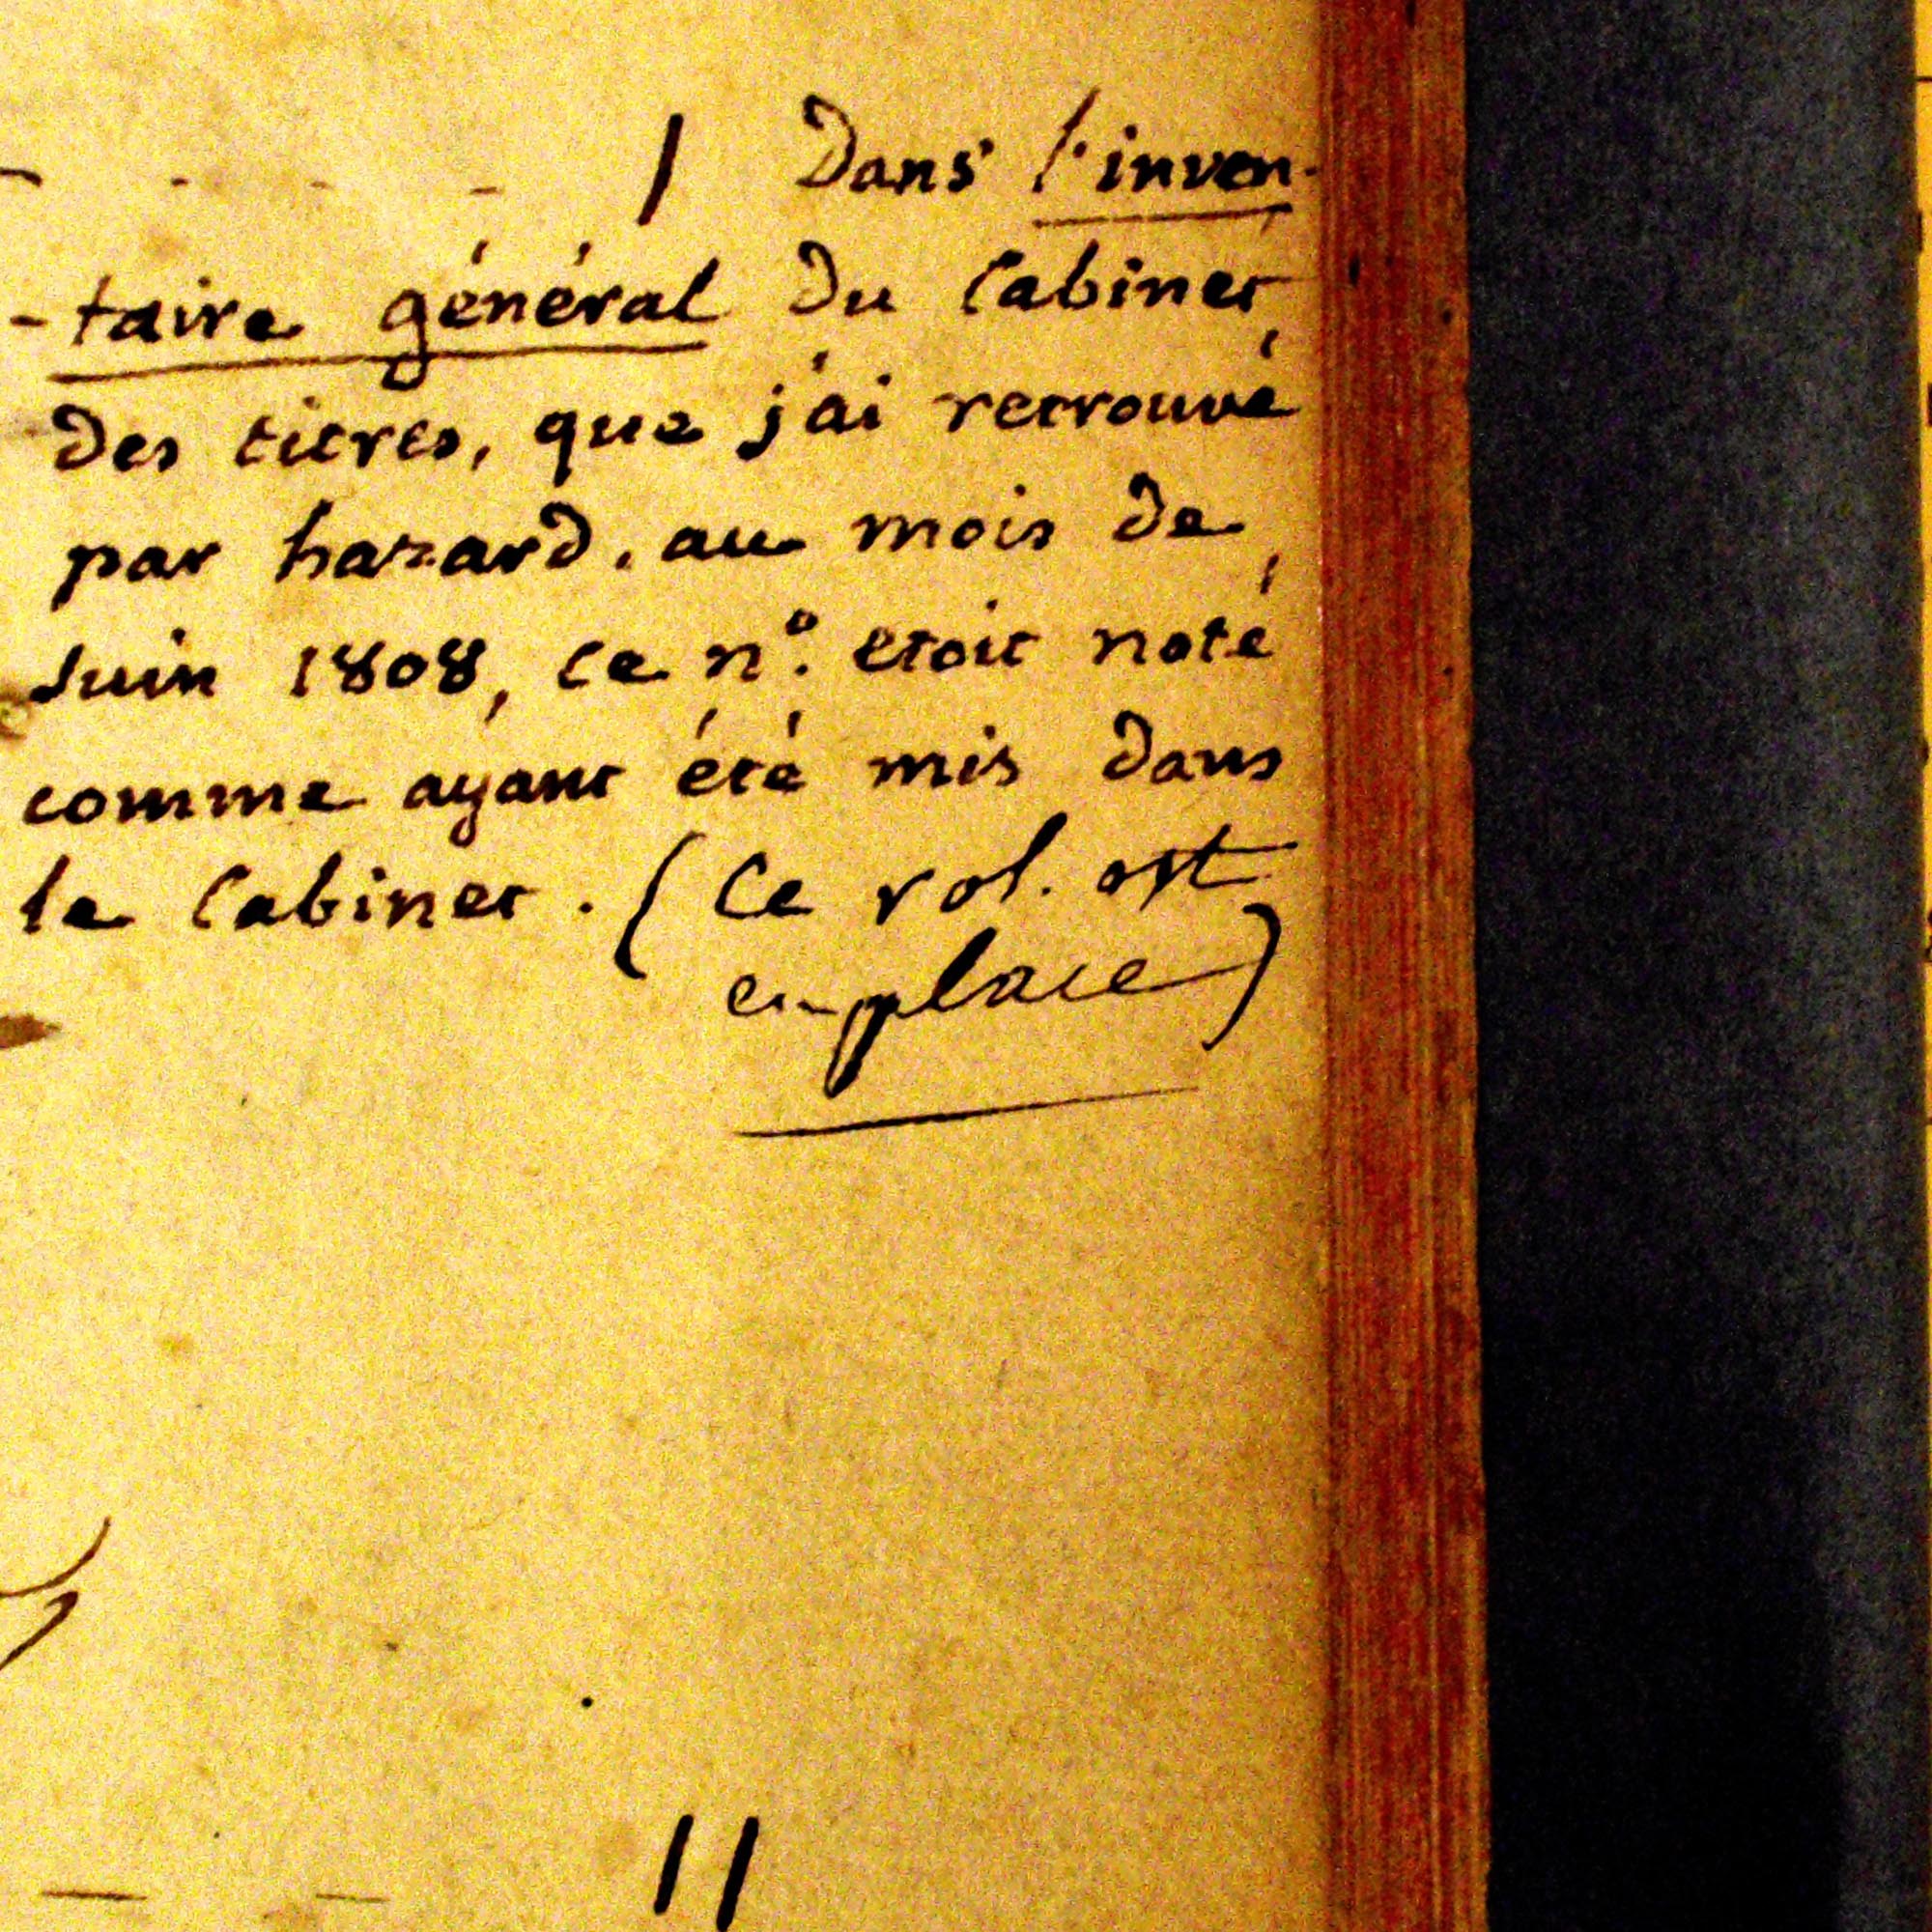 1 Dans l'inven-
-taire général du Cabinet
des titres, que j'ai retrouvé
par hazard, au mois de
Juin 1808, ce n.° etoit noté
comme ayant été mis dans
le Cabinet. (Ce vol. est
en place)
11